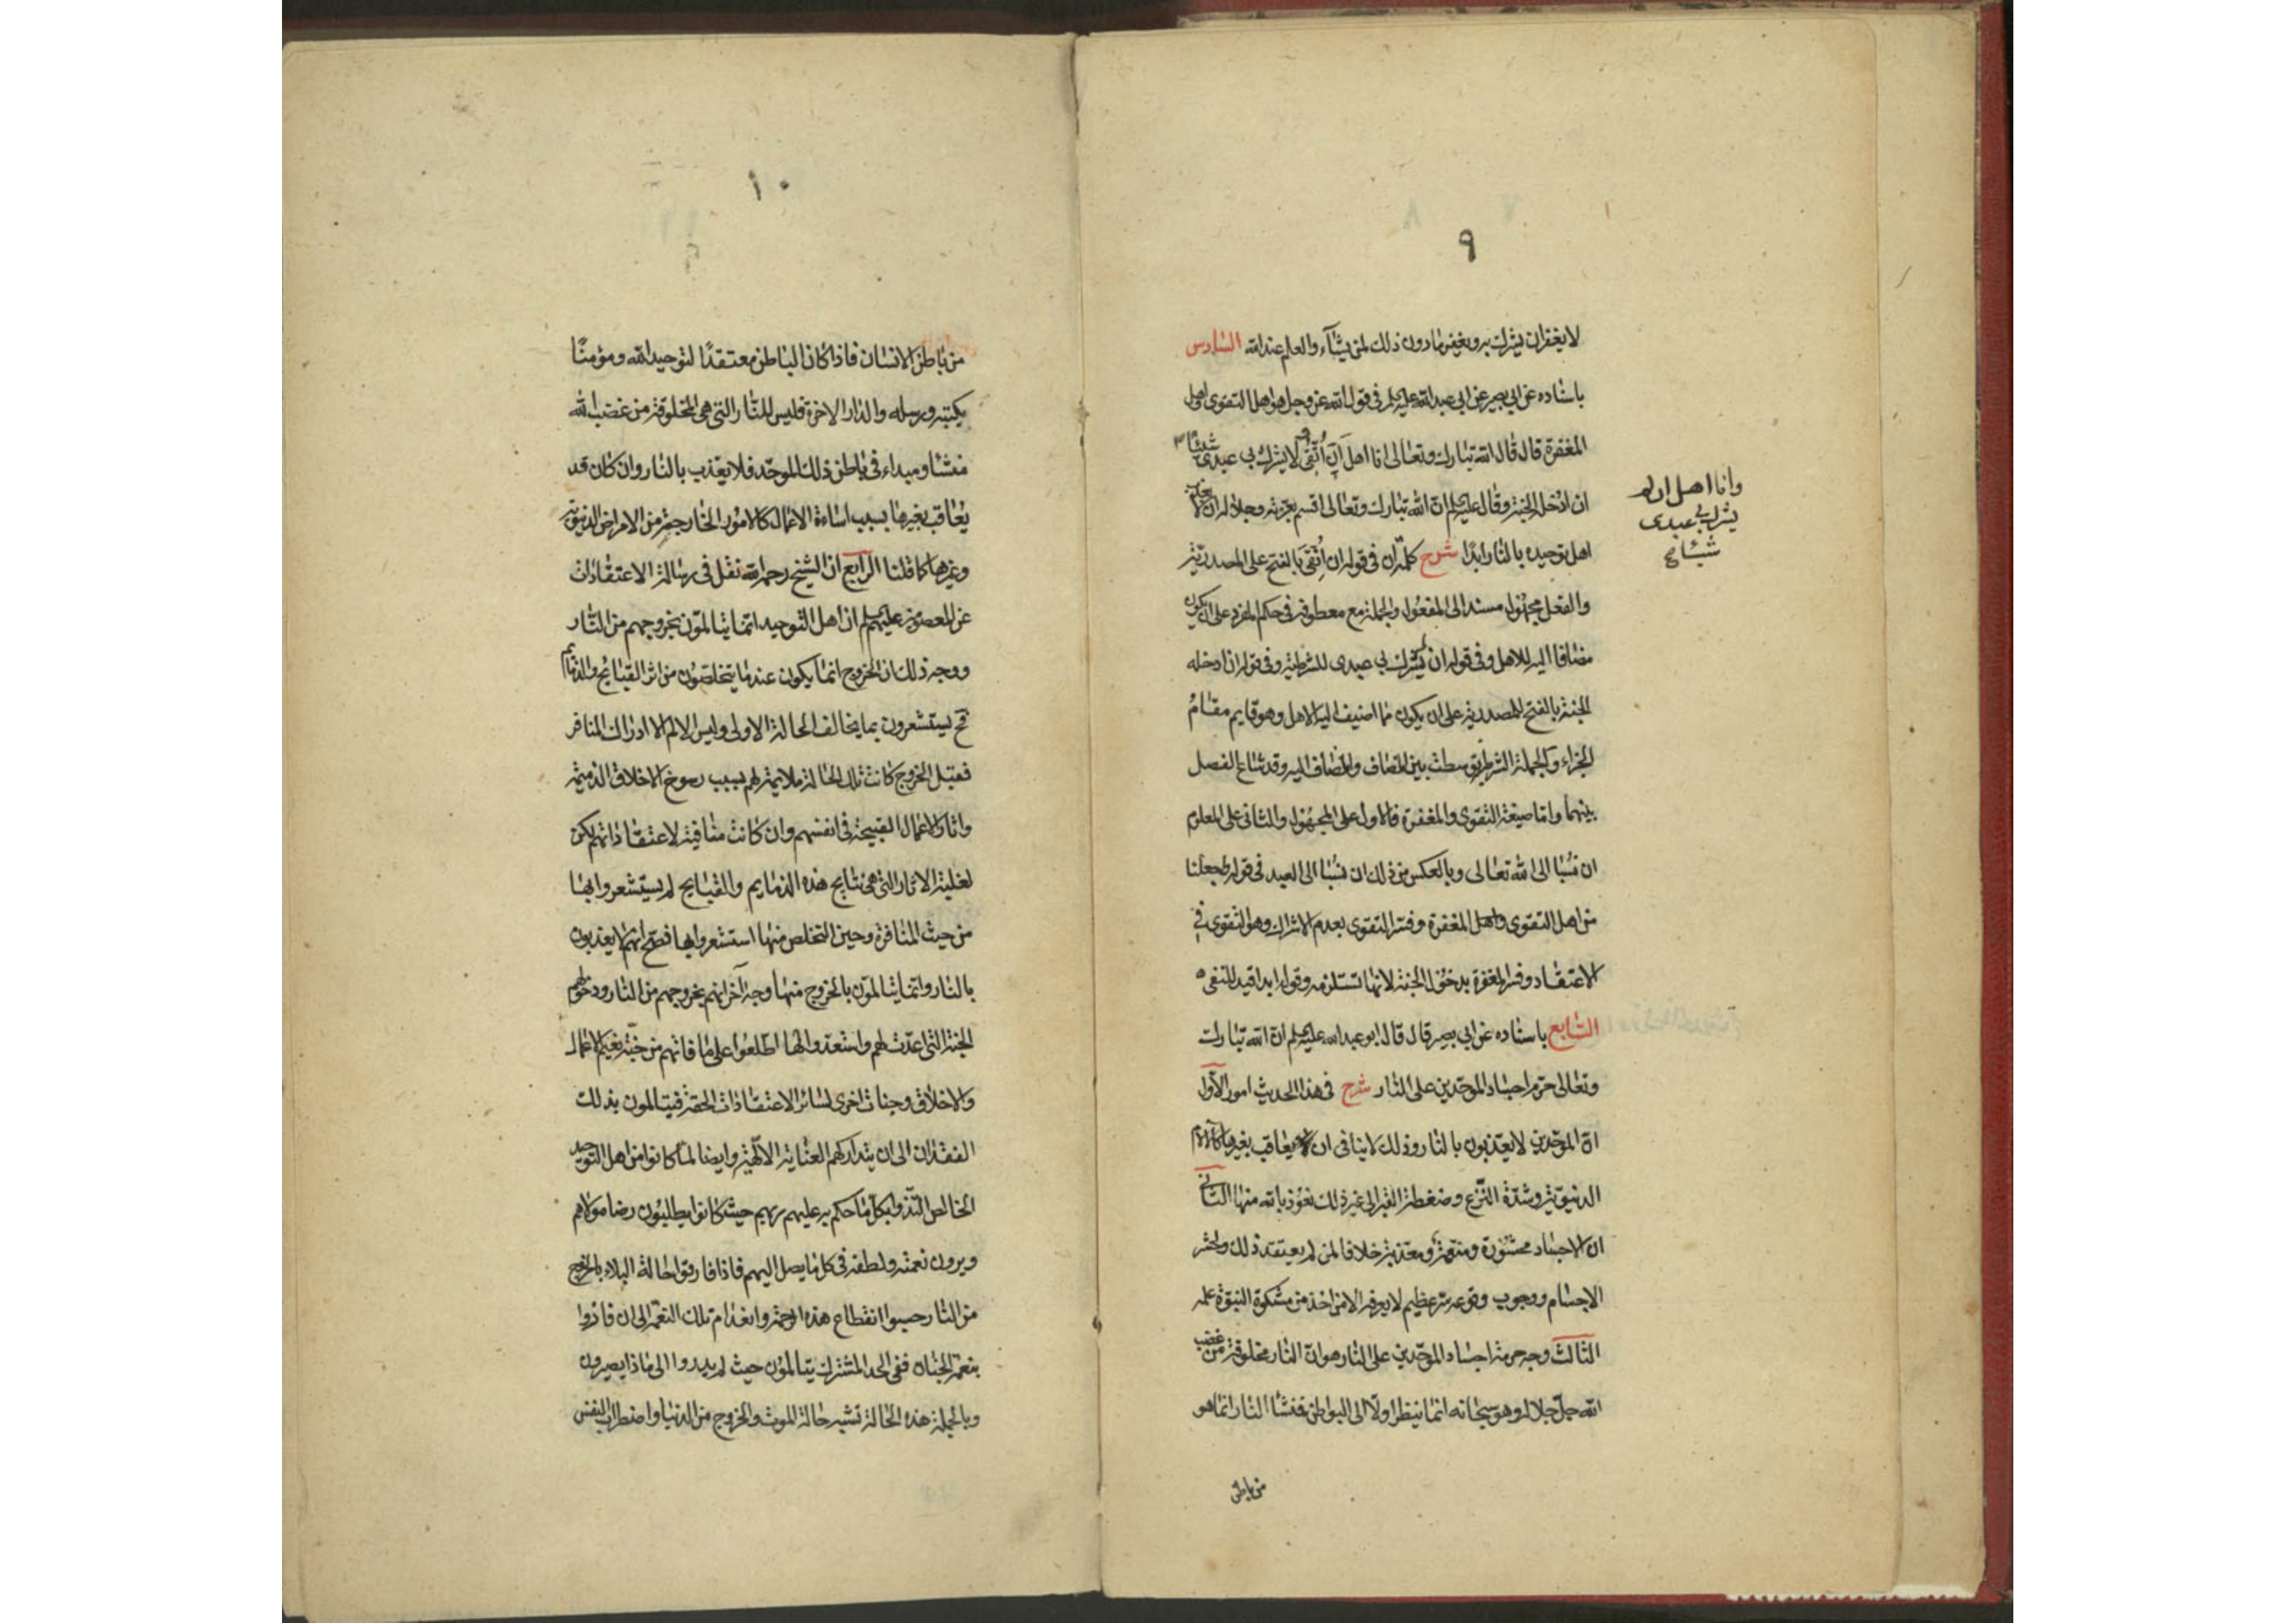 ٩
لا يغفر ان يشرك به ويغفر ما دون ذلك لمن يشآء والعلم عند الله السادس
باسناده عن ابي بصير عن ابي عبد الله عليه السلم في قول الله عز وجل هو اهل التقوى واهل
المغفرة قال قال الله تبارك وتعالى انا اهل اَن اُتّقى ولا يشرك بي عبدى شيئا
وانا اهل ان لم
يشرك بي عبدى
شيئا
ان ادخله الجنة وقال عليه السلم ان الله تبارك وتعالى اقسم بعزته وجلاله ان لا يعذب
اهل توحيده بالنار ابدًا شرح كلمة ان في قوله ان اُتّقى بالفتح على المصدرية
والفعل مجهول مسند الى المفعول والجملة مع معطوفه في حكم المفرد على ان يكون
مضافا اليه للاهل وفي قوله ان لم يشرك بي عبدى للشرطية وفي قوله ان ادخله
الجنة بالفتح للمصدرية على ان يكون مما اضيف اليه الاهل وهو قايم مقام
الجزاء والجملة الشرطية توسطت بين المضاف والمضاف اليه وقد شاع الفصل
بينهما واما صيغة التقوى والمغفرة فالاول على المجهول والثانى على المعلوم
ان نسبا الى الله تعالى وبالعكس من ذلك ان نسبا الى العبد في قوله واجعلنا
من اهل التقوى واهل المغفرة وفسر التقوى بعدم الاشراك وهو التقوى في
الاعتقاد وفسر المغفرة بدخول الجنة لانها تستلزمه وقوله ابدا قيد للنفى
السابع باسناده عن ابي بصير قال قال ابو عبد الله عليه السلم ان الله تبارك
وتعالى حرّم اجساد الموحّدين على النار شرح في هذا الحديث امور الاول
ان الموحّدين لا يعذبون بالنار وذلك لا ينافى ان يعاقب بغيرها كالآلام
الدنيوية وشدّة النزع وضغطة القبر الى غير ذلك نعوذ بالله منها الثاني
ان الاجساد محشورة ومنعّمة ومعذبة خلافا لمن لم يعتقد ذلك ولحشر
الاجسام ووجوب وقوعه سر عظيم لا يعرفه الا من اخذ من مشكوة النبوة علمه
الثالث وجه حرمة اجساد الموحّدين على النار هو ان النار مخلوقة من غضب
الله جل جلاله وهو سبحانه انما ينظر اولا الى البواطن فمنشأ النار انما هو
من باطن
١٠
من باطن الانسان فاذا كان الباطن معتقدًا لتوحيد الله ومؤمنًا
بكتبه ورسله والدار الاخرة فليس للنار التى هى المخلوقة من غضب الله
منشا ومبداء في باطن ذلك الموحّد فلا يعذب بالنار وان كان قد
يُعاقب بغيرها بسبب اساءة الاعمال كالامور الخارجة من الامراض الدنيوية
وغيرها كما قلنا الرابع ان الشيخ رحمه الله نقل في رسالة الاعتقادات
عن المعصومين عليهم السلم ان اهل التوحيد انما يتالمون بخروجهم من النار
ووجه ذلك ان الخروج انما يكون عندما يتخلصون من اثر القبايح والذمايم
فح يستشعرون بما يخالف الحالة الاولى وليس الالم الا ادراك المنافر
فقبل الخروج كانت تلك الحالة ملايمة لهم بسبب رسوخ الاخلاق الذميمة
واثار الاعمال القبيحة في انفسهم وان كانت منافية لاعتقاداتهم لكن
لغلبة الاثار التى هى نتايج هذه الذمايم والقبايح لم يستشعروا بها
من حيث المنافرة وحين التخلص منها استشعروا بها فصح انهم لا يعذبون
بالنار وانما يتالمون بالخروج منها وجه آخر انهم بخروجهم من النار ودخولهم
الجنة التى اعدّت لهم واستعدوا لها اطلعوا على ما فاتهم من جنّة نعيم الاعمال
والاخلاق وجنات اخرى لسائر الاعتقادات الحقة فيتالمون بذلك
الفقدان الى ان يتداركهم العناية الالهية وايضا لما كانوا من اهل التوحيد
الخالص التذوا بكل ما حكم به عليهم ربهم حيث كانوا يطلبون رضا مولاهم
ويرون نعمته ولطفه في كل ما يصل اليهم فاذا فارقوا حالة البلاء بالخروج
من النار حسبوا انقطاع هذه الرحمة وانعدام تلك النعمة الى ان فازوا
بنعمة الجنان ففى الحد المشترك يتالمون حيث لم يدروا الى ماذا يصيرون
وبالجملة هذه الحالة تشبه حالة الموت والخروج من الدنيا واضطراب النفس